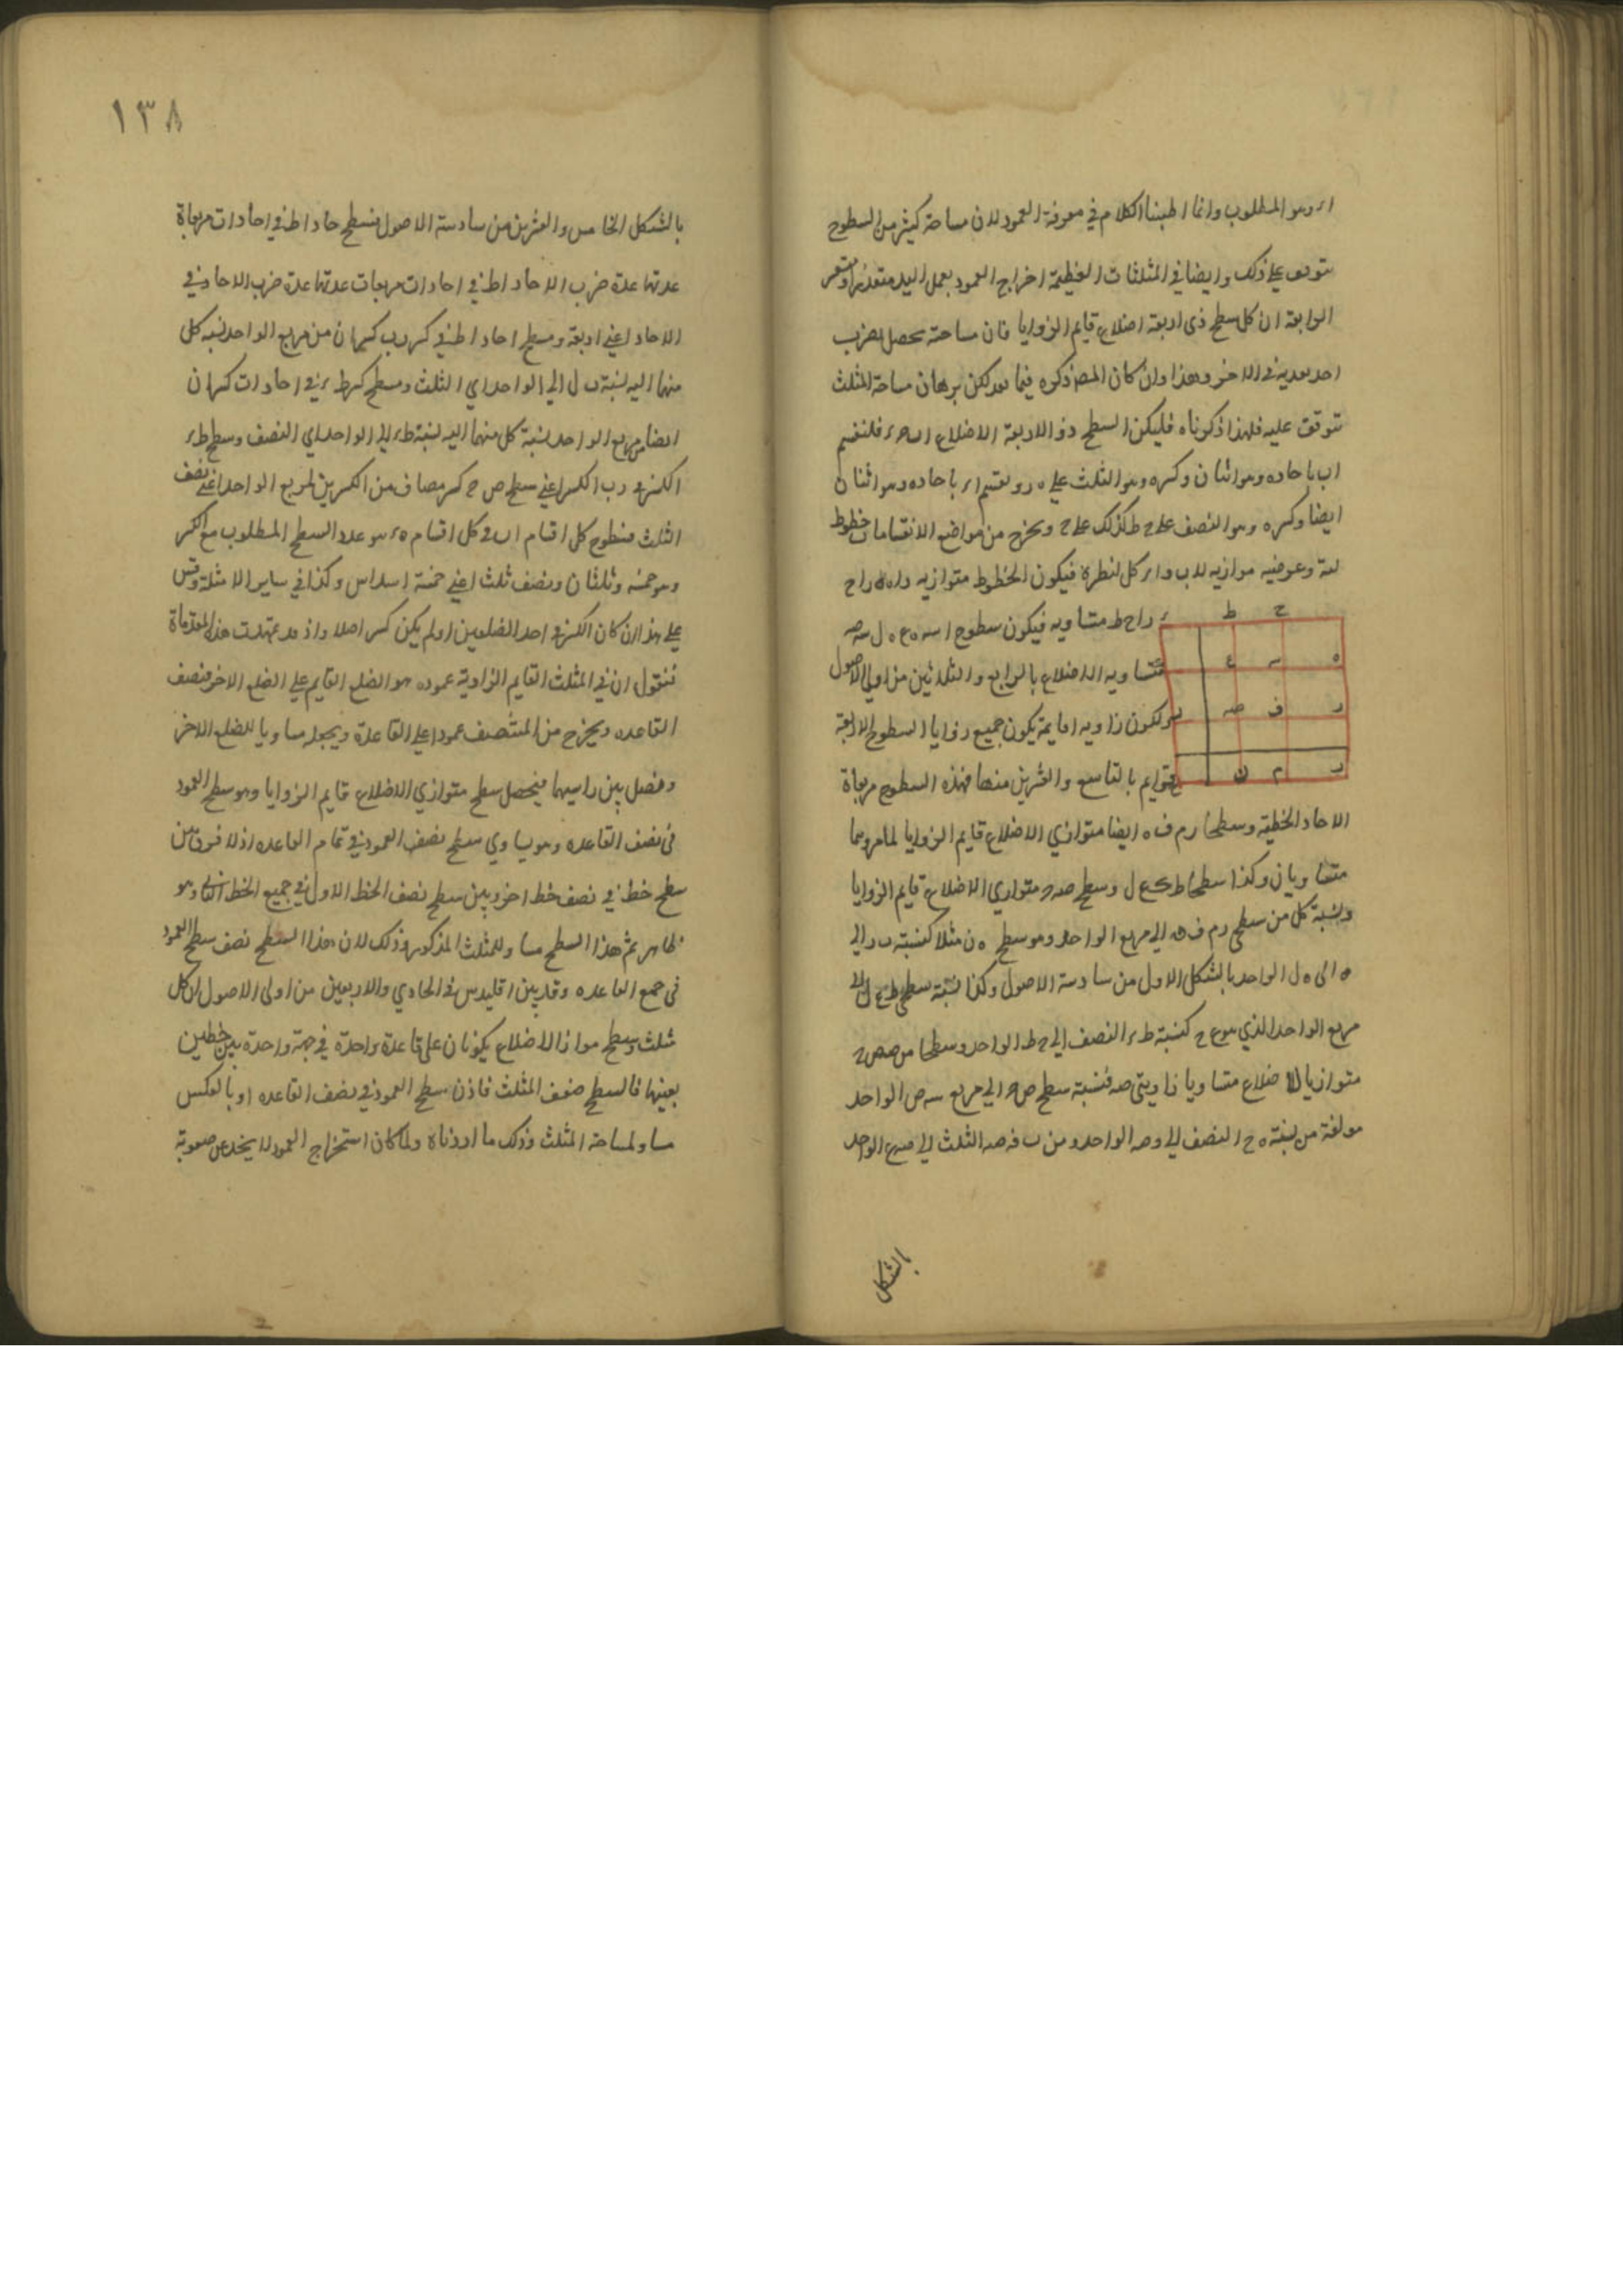 ا ر وهو المطلوب وانما اطبنا الكلام في معرفة العمود لان مساحة كثير من السطوح
على ذلك وايضا في المثلثات العظيمة اخراج العمود بعمل اليد متعذر او متعسر
الرابعة ان كل سطح ذي اربعة اضلاع قايم الزوايا فان مساحته تحصل بضرب
احد بعديه في الاخر وهذا وان كان المص ذكره فيما بعد لكن برهان مساحة المثلث
تتوقف عليه فلهذا ذكرناه فليكن السطح ذو الاربعة الاضلاع فلنقسم
اب باحاده وهو اثنان وكسره وهو الثلث على ه ر ونقسم ا ء باحاده وهو اثنان
ايضا وكسره وهو النصف على ح ط كذلك ونخرج من مواضع الانقسامات خطوط
موازيه لاب و ا ء كل لنظيره فيكون الخطوط متوازيه
متساويه فيكون سطوح
متساويه الاضلاع بالرابع والثلاثين من اولى الاصول
ولكون زاويه ا قايمة يكون جميع زوايا السطوح الاربعة
قوايم بالتاسع والعشرين منها فهذه السطوح مربعاة
الاحاد الخطية وسطحا ر م ف ه ايضا متوازي الاضلاع قايم الزوايا لما مر وهما
متساويان وكذا سطحا وسطح متوازي الاضلاع قايم الزوايا
ونسبة كل من سطحي الي مربع الواحد وهو سطح ه ن مثلا كنسبة
ه الى ه ل الواحد بالشكل الاول من سادسة الاصول وكذا نسبة سطحي
مربع الواحد الذي هو ع ح كنسبة ط ء النصف الي ح ط الواحد وسطحا
متوازيا الاضلاع متساويا زاويتي صه فنسبة سطح الي مربع سه ص الواحد
مولفة من نسبة ه ح النصف الي الواحد ومن الثلث الي الواحد
بالشكل
ح
ط
ه
سه
ع
ر
ف
صه
م
ن
١٣٨
بالشكل الخامس والعشرين من سادسة الاصول فسطح احاد اط في احاد ات مربعاة
عدتها عدة ضرب الاحاد اط في احاد ات مربعات عدتها عدة ضرب الاحاد في
الاحاد اعني اربعة وسطح احاد اط في كسر كسران من مربع الواحد نسبة كل
منهما اليه نسبة ب ل الي الواحد اي الثلث وسطح كسر ط ء في احاد ات كسران
ايضا من مربع الواحد نسبة كل منهما اليه نسبة ط ء الي الواحد اي النصف وسطح ط ء
الكسر في رب الكسر اعني سطح ص ح كسر مضاف من الكسرين لمربع الواحد اعني نصف
الثلث فسطوح كل اقسام اب في كل اقسام ء ه هو عدد السطح المطلوب مع الكسر
وهو خمسة وثلثان ونصف ثلث اعني خمسة اسداس وكذا في ساير الامثلة وقس
علي هذا ان كان الكسر في احد الضلعين او لم يكن كسر اصلا واذ قد تمهدت هذه المقدماة
فنقول ان في المثلث القايم الزاوية عموده هو الضلع القايم علي الضلع الاخر فنصف
القاعده ويخرج من المنتصف عمودا علي القاعدة ويجعله مساويا للضلع الاخر
ونصل بين راسيهما فيحصل سطح متوازي الاضلاع قايم الزوايا وهو سطح العمود
في نصف القاعده وهو يساوي سطح نصف العمود في تمام القاعده اذ لا فرق بين
سطح خط في نصف خط اخر وبين سطح نصف الخط الاول في جميع الخط الثاني وهو
ظاهر ثم هذا السطح مساو للمثلث المذكور وذلك لان هذا السطح نصف سطح العمود
في جميع القاعده وقد بين اقليدس في الحادي والاربعين من اولى الاصول ان كل
مثلث وسطح مواز الاضلاع يكونان على قاعدة واحدة في جهة واحدة بين خطين
بعينهما فالسطح ضعف المثلث فاذن سطح العمود في نصف القاعده او بالعكس
مساو لمساحة المثلث وذلك ما اردناه ولما كان استخراج العمود لا يخلو عن صعوبة